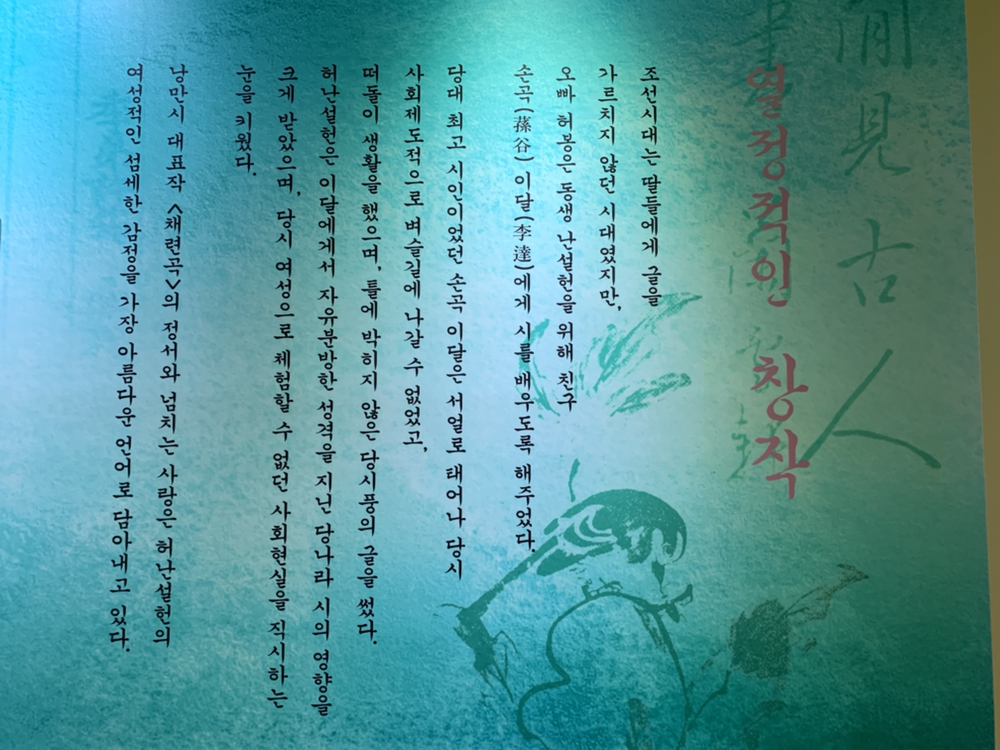 閒見古人
열정적인 창작
조선시대는 딸들에게 글을
가르치지 않던 시대였지만,
오빠 허봉은 동생 난설헌을 위해 친구
손곡(蓀谷) 이달(李達)에게 시를 배우도록 해주었다.
당대 최고 시인이었던 손곡 이달은 서얼로 태어나 당시
사회제도적으로 벼슬길에 나갈 수 없었고,
떠돌이 생활을 했으며, 틀에 박히지 않은 당시풍의 글을 썼다.
허난설헌은 이달에게서 자유분방한 성격을 지닌 당나라 시의 영향을
크게 받았으며, 당시 여성으로 체험할 수 없던 사회현실을 직시하는
눈을 키웠다.
낭만시 대표작 <채련곡>의 정서와 넘치는 사랑은 허난설헌의
여성적인 섬세한 감정을 가장 아름다운 언어로 담아내고 있다.